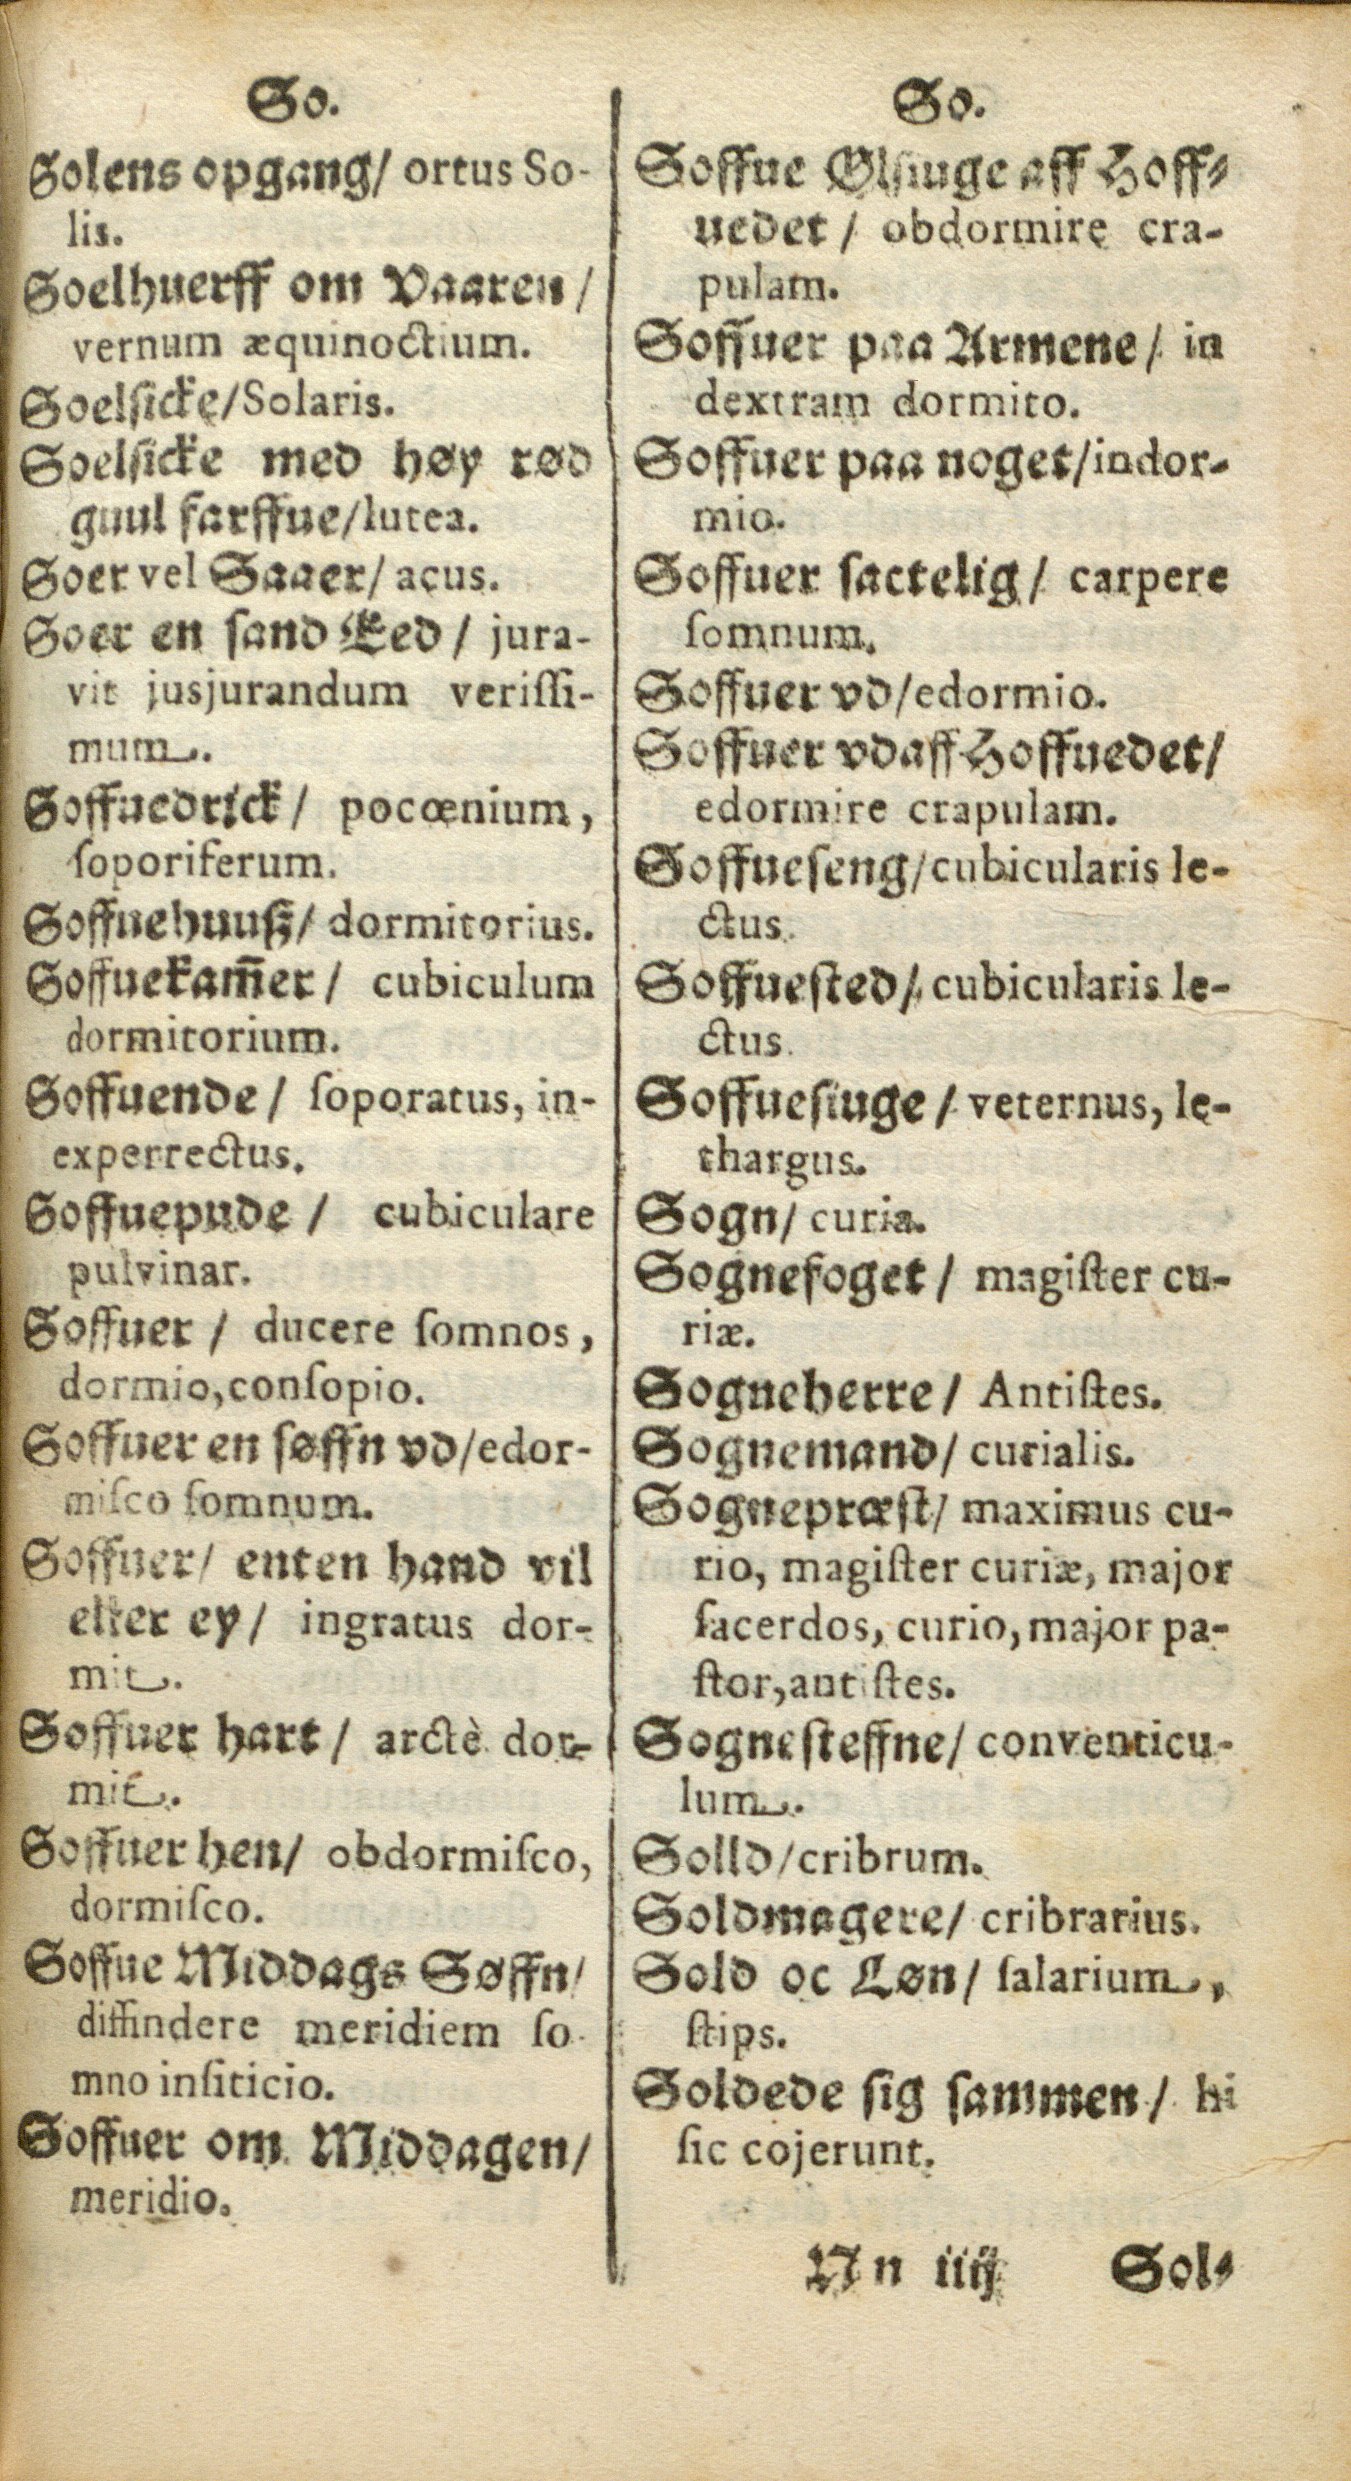 So.
Solens opgang/ ortus So-
lis.
Soelhuerff om Vaaren/
vernum æquinoctium.
Soelſicke/Solaris.
Soelſicke med høy rød
guul farffue/lutea.
Soer vel Saaer/ acus.
Soer en ſand Eed/ jura-
vit jusjurandum veriſſi-
mum.
Soffuedrick/ pocœnium,
ſoporiferum.
Soffuehuuß/ dormitorius.
Soffuekam̄er/ cubiculum
dormitorium.
Soffuende/ ſoporatus, in-
experrectus.
Soffuepude/ cubiculare
pulvinar.
Soffuer/ ducere ſomnos,
dormio, conſopio.
Soffuer en ſøffn vd/edor-
miſco ſomnum.
Soffuer/ enten hand vil
eller ey/ ingratus dor-
mit.
Soffuer hart/ arctè dor-
mit.
Soffuer hen/ obdormiſco,
dormiſco.
Soffue Middags Søffn/
diffindere meridiem ſo-
mno inſiticio.
Soffuer om Middagen/
meridio.
So.
Soffue Ølſiuge aff Hoff-
uedet/ obdormire cra-
pulam.
Soffuer paa Armene/ in
dextram dormito.
Soffuer paa noget/indor-
mio.
Soffuer ſactelig/ carpere
ſomnum.
Soffuer vd/edormio.
Soffuer vdaff Hoffuedet/
edormire crapulam.
Soffueſeng/cubicularis le-
ctus.
Soffueſted/ cubicularis le-
ctus.
Soffueſiuge/ veternus, le-
thargus.
Sogn/ curia.
Sognefoget/ magiſter cu-
riæ.
Sogneherre/ Antiſtes.
Sognemand/ curialis.
Sognepræſt/ maximus cu-
rio, magiſter curiæ, major
ſacerdos, curio, major pa-
ſtor, antiſtes.
Sogneſteffne/ conventicu-
lum.
Solld/cribrum.
Soldmagere/ cribrarius.
Sold oc Løn/ ſalarium,
ſtips.
Soldede ſig ſammen/ hi
ſic cojerunt.
Nn iiij Sol-